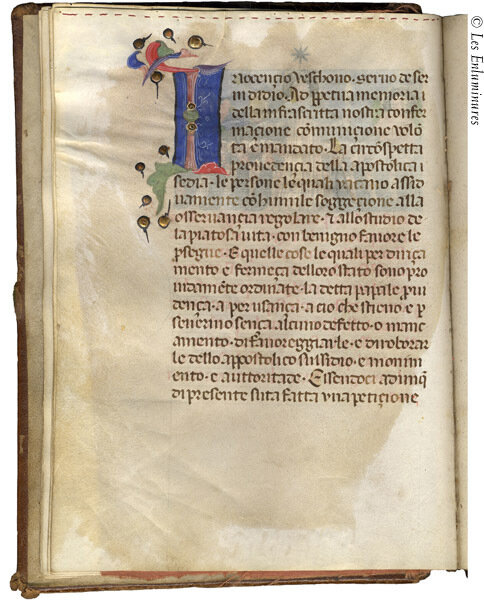 Innocençio veschovo. servo de ser
vi didio. Ad p̱petua memoria i
della infrascrita nostra confer
maçione cōmuniçione volō
tà e mandato. La circōspetta
providencia della apostolica i
sedia. le persone le quali vacano assid
uamente cō humile soggeçione alla
osservança regolare. & allo studio de
la piatosa vita. con benigno favore le
p̱segue. E quelle cose le quali per driça
mento e fermeça dello ro stato sono pro
vidamēte ordinate. la detta papale p̱vi
dença. a per usança. a cio che stieno e p̱
severino sença alcuno defetto. o manc
amento. di favoreggiarle. e di roborar
le dello appostolico sussidio. e monim
ento. e auttoritade. Essendoci adunq̄
di presente suta fatta una petiçione
© Les Enluminures